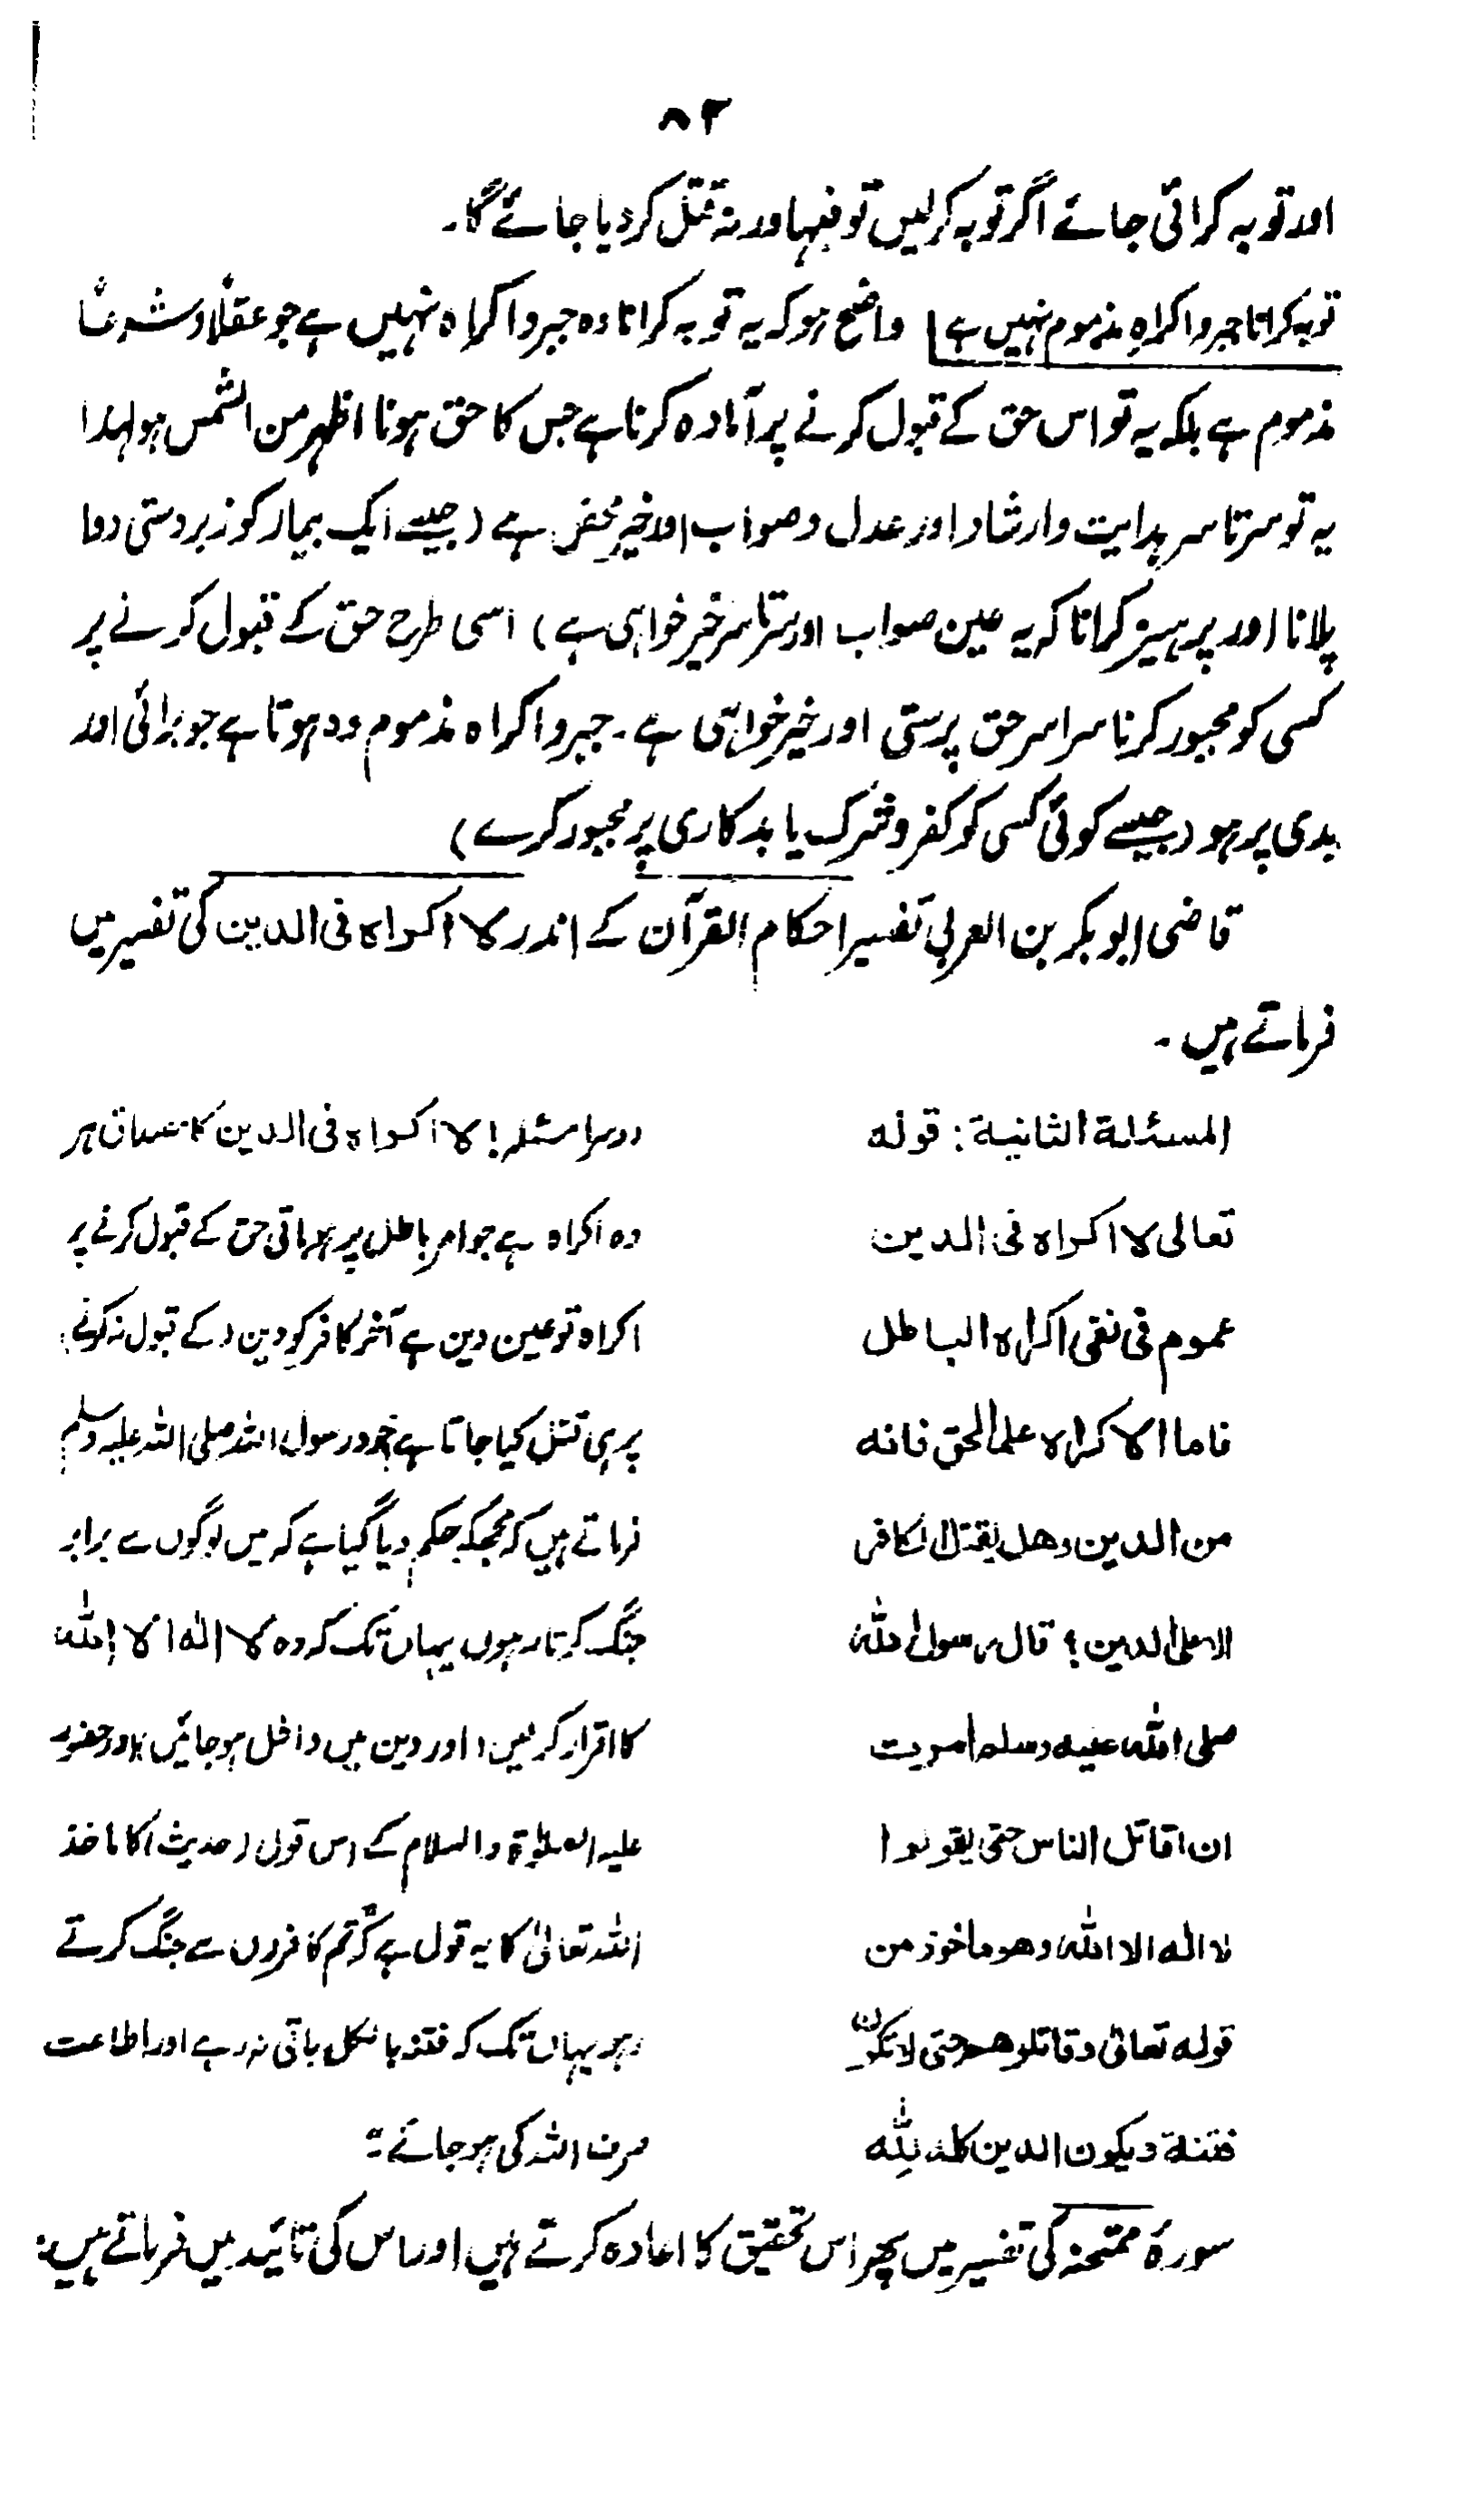 ۸۲
اور توبہ کرائی جائے اگر توبہ کرلیں تو فبہا ورنہ قتل کر دیا جائے گا۔
توبہ کرانا جبر و اکراہِ مذموم نہیں ہے واضح ہو کہ یہ توبہ کرانا وہ جبر و اکراہ نہیں ہے جو عقلاً و شرعاً
مذموم ہے بلکہ یہ تو اس حق کے قبول کرنے پر آمادہ کرنا ہے جس کا حق ہونا اظہر من الشمس ہو لہذا
یہ تو سرتاسر ہدایت وارشاد اور عدل و صواب اور خیر محض ہے (جیسے ایک بیمار کو زبردستی دوا
پلانا اور پرہیز کرانا کہ یہ عین صواب اور سرتاسر خیر خواہی ہے) اسی طرح حق کے قبول کرنے پر
کسی کو مجبور کرنا سراسر حق پرستی اور خیر خواہی ہے۔ جبر و اکراہ مذموم وہ ہوتا ہے جو برائی اور
بدی پر ہو (جیسے کوئی کسی کو کفر و شرک یا بدکاری پر مجبور کرے)
قاضی ابو بکر بن العربی تفسیر احکام القرآن کے اندر لا اکراہ فی الدین کی تفسیر میں
فرماتے ہیں۔
المسئلة الثانية: قوله
تعالى لا اكراه فى الدين
عموم فى نفى اكراه الباطل
فاما الاكراه على الحق فانه
من الدين وهل يقتل الكافر
الا على الدين؟ قال رسول الله
صلى الله عليه وسلم امرت
ان اقاتل الناس حتى يقولوا
لا اله الا الله وهو ماخوذ من
قوله تعالى وقاتلوهم حتى لا تكون
فتنة ويكون الدين كله لله
دوسرا مسئلہ! لا اکراہ فی الدین کا تعلق ہر
وہ اکراہ ہے جو امر باطل پر ہو باقی حق کے قبول کرنے پر
اکراہ تو عین دین ہے آخر کافر کو دین کے قبول نہ کرنے
پر ہی قتل کیا جاتا ہے خود رسول اللہ صلی اللہ علیہ وسلم
فرماتے ہیں کہ مجھکو حکم دیا گیا ہے کہ میں لوگوں سے برابر
جنگ کرتا رہوں یہاں تک کہ وہ لا الہ الا اللہ
کا اقرار کر لیں (اور دین میں داخل ہو جائیں) اور حضور
علیہ الصلوٰۃ والسلام کے اس قول (حدیث) کا ماخذ
اللہ تعالیٰ کا یہ قول ہے کہ تم کافروں سے جنگ کرتے
رہو یہاں تک کہ فتنہ بالکل باقی نہ رہے اور اطاعت
صرف اللہ کی ہو جائے"
سورۂ ممتحنہ کی تفسیر میں پھر اس تحقیق کا اعادہ کرتے ہیں اور اس کی تائید میں فرماتے ہیں: